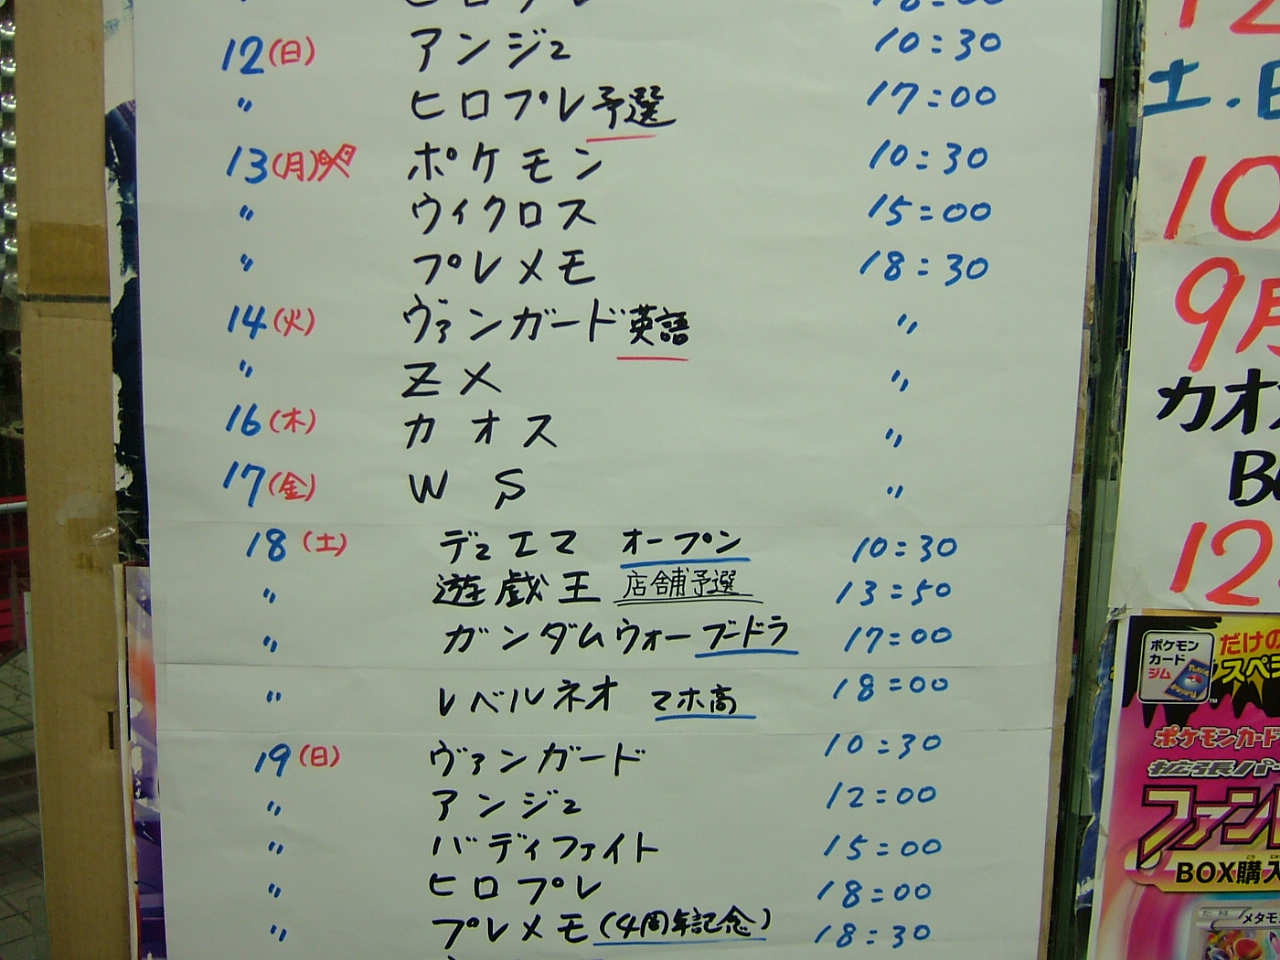 12(日) アンジュ 10:30
〃 ヒロプレ予選 17:00
13(月)㊗ ポケモン 10:30
〃 ウィクロス 15:00
〃 プレメモ 18:30
14(火) ヴァンガード英語 〃
〃 ZX 〃
16(木) カオス 〃
17(金) WS 〃
18(土) デュエマ オープン 10:30
〃 遊戯王 店舗予選 13:50
〃 ガンダムウォーブードラ 17:00
〃 レベルネオ マホ高 18:00
19(日) ヴァンガード 10:30
〃 アンジュ 12:00
〃 バディファイト 15:00
〃 ヒロプレ 18:00
〃 プレメモ(4周年記念) 18:30
土.日
10
9月
カオス
12
ポケモン
カードジム
だけの
スペ
ポケモンカード
拡張パ
BOX購入
メタモ